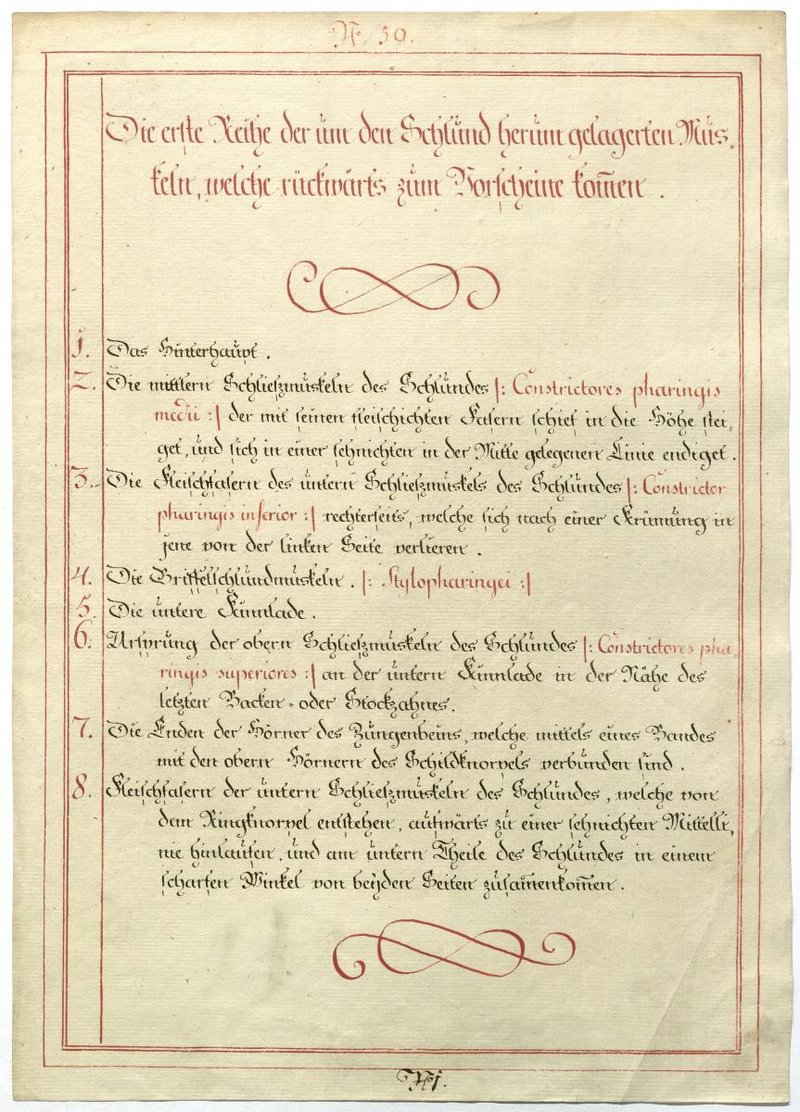 N. 50.
Die erste Reihe der üm den Schlünd herüm gelagerten Müs,
keln, welche rückwärts züm Vorscheine kom̅en.
1. Das Hinterhaüpt.
2. Die mittlern Schließmüskeln des Schlündes |: Constrictores pharingis
medii :| der mit seinen fleischichten Fasern schief in die Höhe stei,
get, ünd sich in einer sehnichten in der Mitte gelegenen Linie endiget.
3. Die Fleischfasern des üntern Schließmüskels des Schlündes |: Constrictor
pharingis inferior :| rechterseits, welche sich nach einer Krüm̅üng in
jene von der linken Seite verlieren.
4. Die Griffelschlündmüskeln. |: Stylopharingei :|
5. Die üntere Kinnlade.
6. Ursprüng der obern Schließmüskeln des Schlündes |: Constrictores pha,
ringis superiores :| an der üntern Kinnlade in der Nähe des
letzten Backen- oder Stockzahnes.
7. Die Enden der Hörner des Züngenbeins, welche mittels eines Bandes
mit den obern Hörnern des Schildknorpels verbünden sind.
8. Fleischfasern der üntern Schließmüskeln des Schlündes, welche von
dem Ringknorpel entstehen, aüfwärts zü einer sehnichten Mittelli,
nie hinlaüfen, ünd am üntern Theile des Schlündes in einem
scharfen Winkel von beÿden Seiten züsam̅enkom̅en.